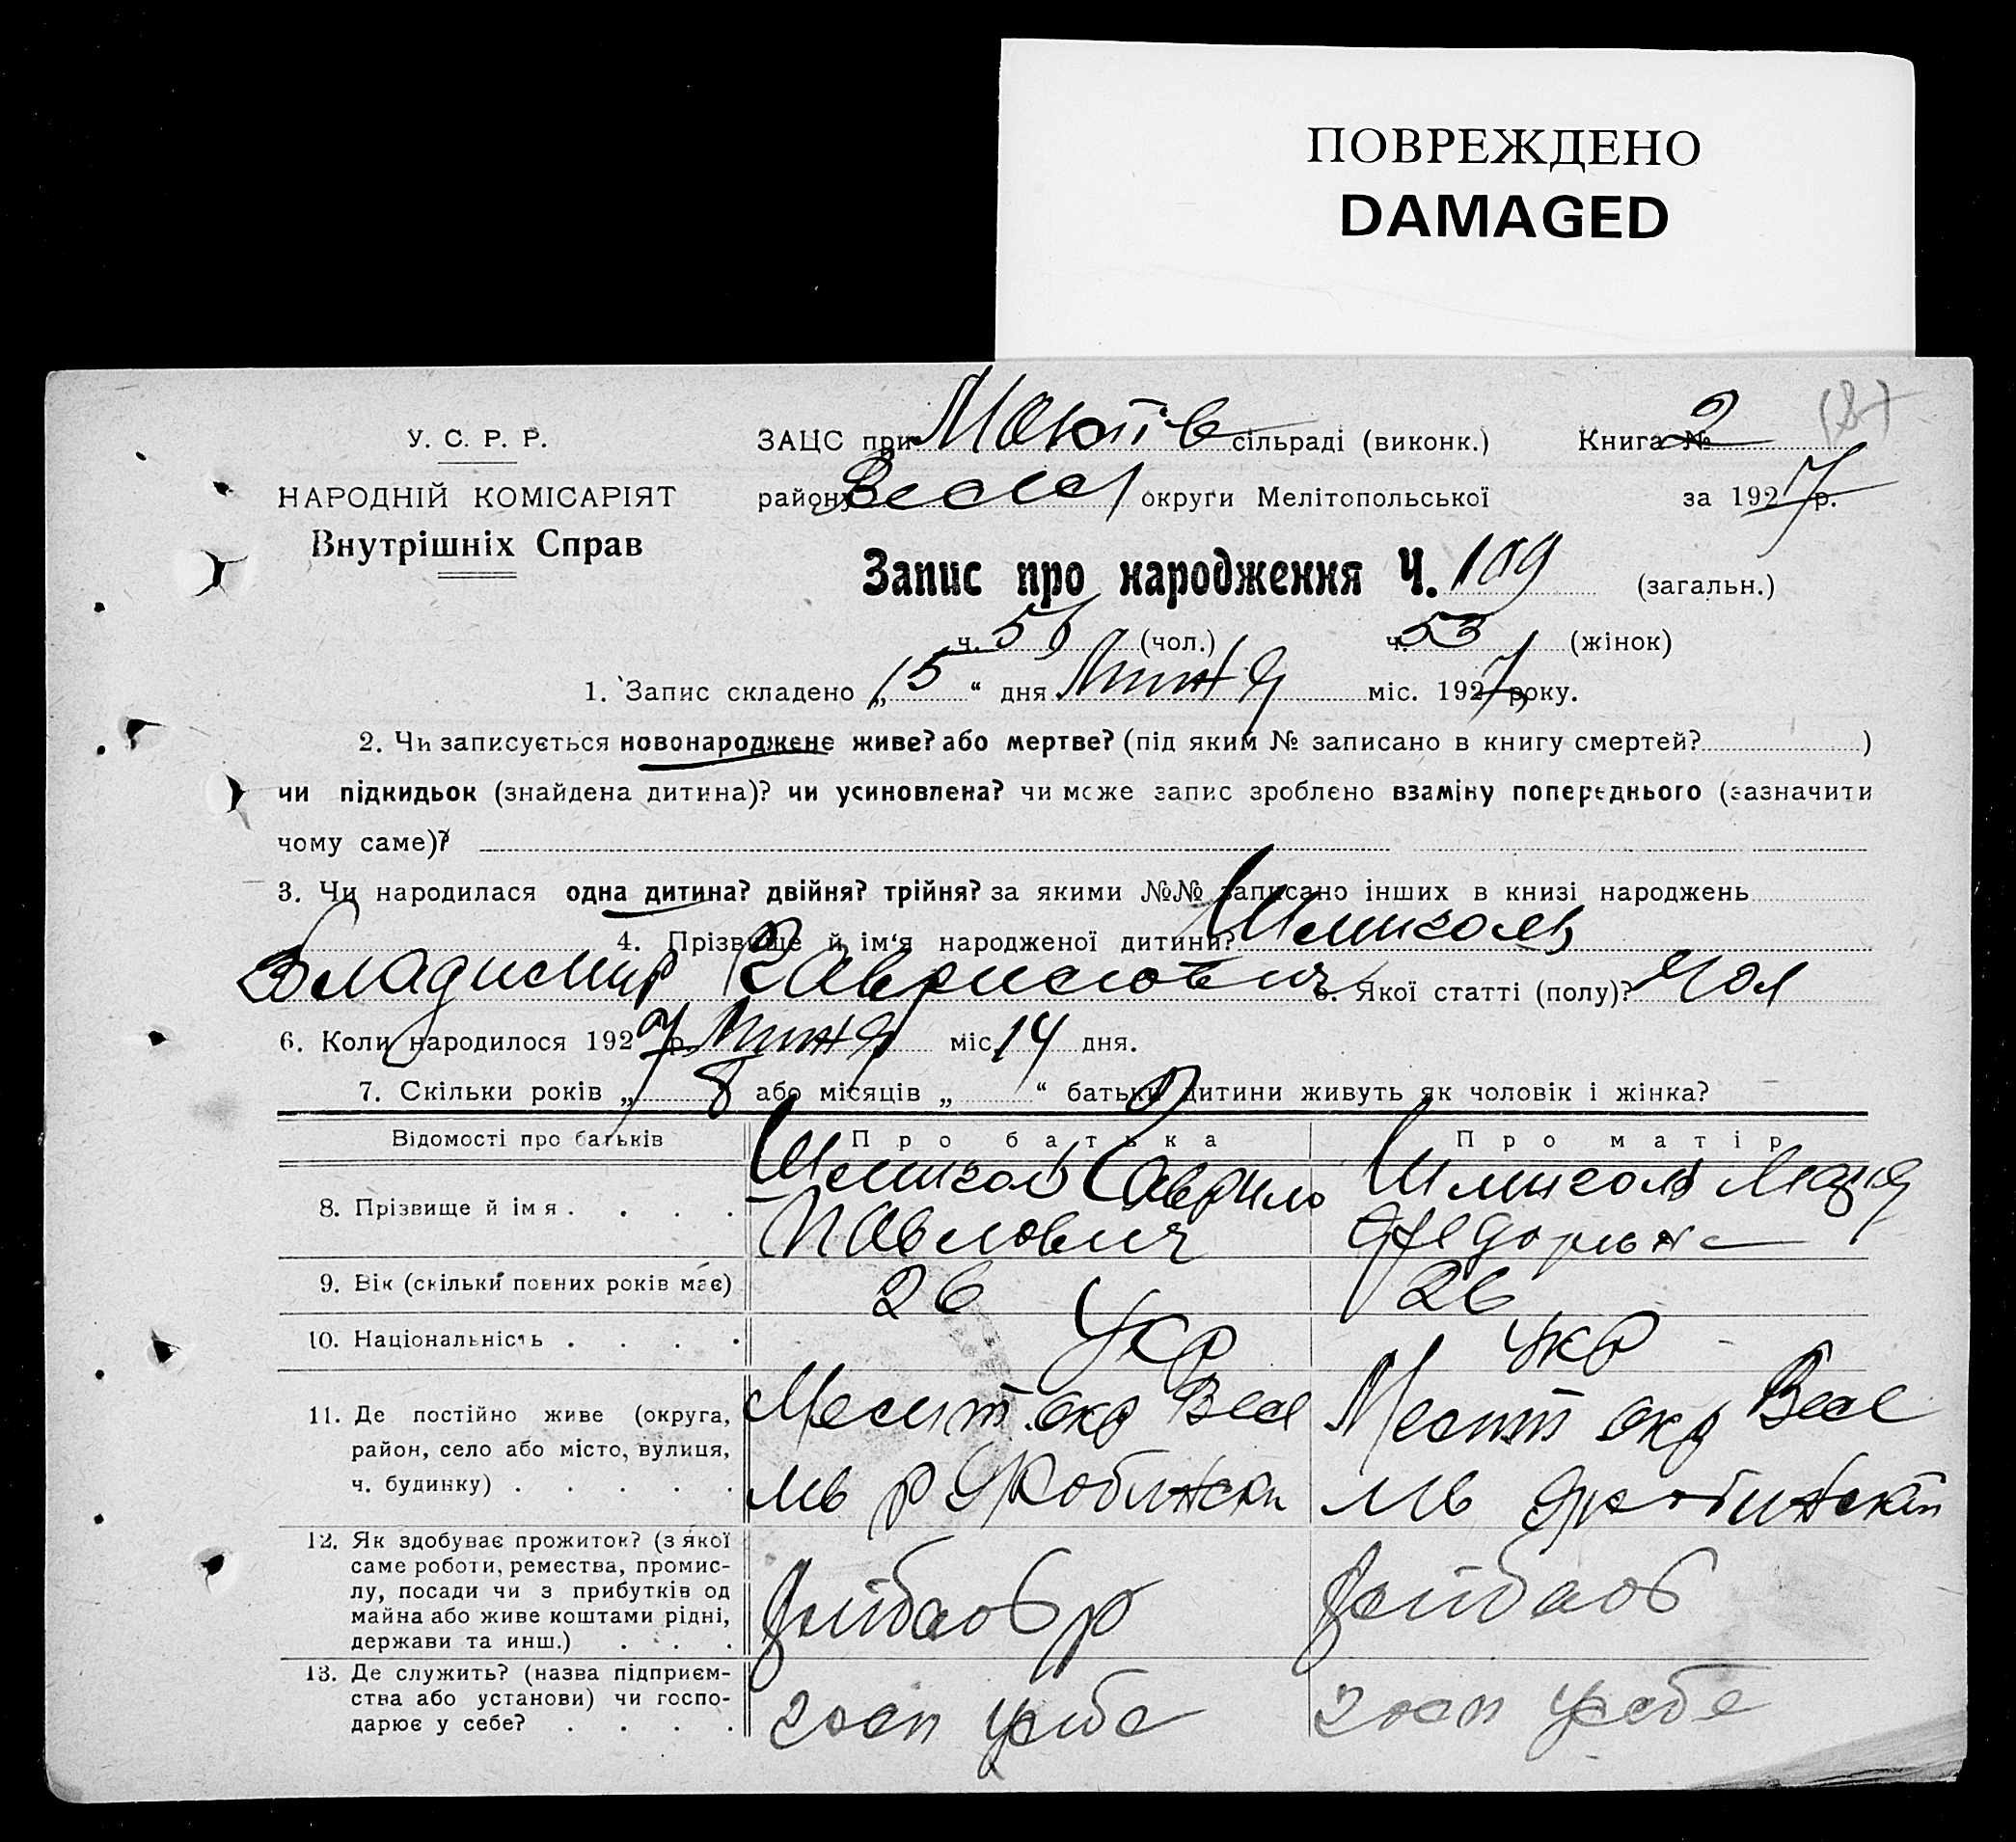 ПОВРЕЖДЕНО
DAMAGED
У. С. Р. Р.
НАРОДНІЙ КОМІСАРІЯТ
Внутрішніх Справ
ЗАЦС при сільраді (виконк.) Книга № 2
району Весел округи Мелітопольської за 1927 р.
Запис про народження Ч. 109 (загальн.)
ч. 56 (чол.) ч. 53 (жінок)
1. Запис складено „15“ дня липня міс. 1927 року.
2. Чи записується новонароджене живе? або мертве? (під яким № записано в книгу смертей? )
чи підкидьок (знайдена дитина)? чи усиновлена? чи може запис зроблено взаміну попереднього (зазначити
чому саме)?
3. Чи народилася одна дитина? двійня? трійня? за якими №№ записано інших в книзі народжень
4. Прізвище й ім‘я народженої дитини? Шмиголь
Владимир Гаврилович 5. Якої статті (полу)? Чол
6. Коли народилося 1927 р. липня міс. 14 дня.
7. Скільки років „ 8 або місяців „ “ батьки дитини живуть як чоловік і жінка?
Відомості про батьків Про батька Про матір
8. Прізвище й імя . . . . Шмиголь Гаврило Шмиголь
Павлович
9. Вік (скільки повних років має) 26 26
10. Національність . . . . Укр Укр
11. Де постійно живе (округа, Мелит окр Весе Мелит окр Весе
район, село або місто, вулиця,
ч. будинку) . . . . .
12. Як здобуває прожиток? (з якої
саме роботи, ремества, промис-
лу, посади чи з прибутків од
майна або живе коштами рідні,
держави та инш.) . . . хлібороб хлібороб
13. Де служить? (назва підприєм-
ства або установи) чи госпо-
дарює у себе? . . . . госп у себе госп у себе